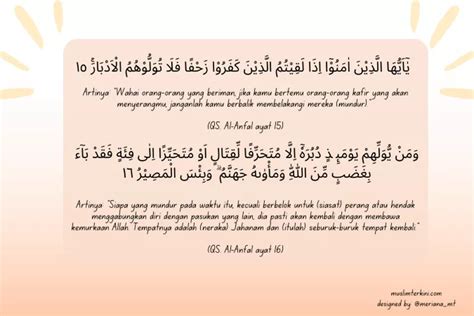 يٰٓاَيُّهَا الَّذِيْنَ اٰمَنُوْٓا اِذَا لَقِيْتُمُ الَّذِيْنَ كَفَرُوْا زَحْفًا فَلَا تُوَلُّوْهُمُ الْاَدْبَارَۚ ١٥
Artinya "Wahai orang-orang yang beriman, jika kamu bertemu orang-orang kafir yang akan
menyerangmu, janganlah kamu berbalik membelakangi mereka (mundur)
(QS. Al-Anfal ayat 15)
وَمَنْ يُّوَلِّهِمْ يَوْمَىِٕذٍ دُبُرَهٗٓ اِلَّا مُتَحَرِّفًا لِّقِتَالٍ اَوْ مُتَحَيِّزًا اِلٰى فِئَةٍ فَقَدْ بَاۤءَ
بِغَضَبٍ مِّنَ اللّٰهِ وَمَأْوٰىهُ جَهَنَّمُ ۗ وَبِئْسَ الْمَصِيْرُ ١٦
Artinya "Siapa yang mundur pada waktu itu, kecuali berbelok untuk (siasat) perang atau hendak
menggabungkan diri dengan pasukan yang lain, dia pasti akan kembali dengan membawa
kemurkaan Allah. Tempatnya adalah (neraka) Jahanam dan (itulah) seburuk-buruk tempat kembali."
(QS. Al-Anfal ayat 16)
muslimterkini.com
designed by @meriana_mt